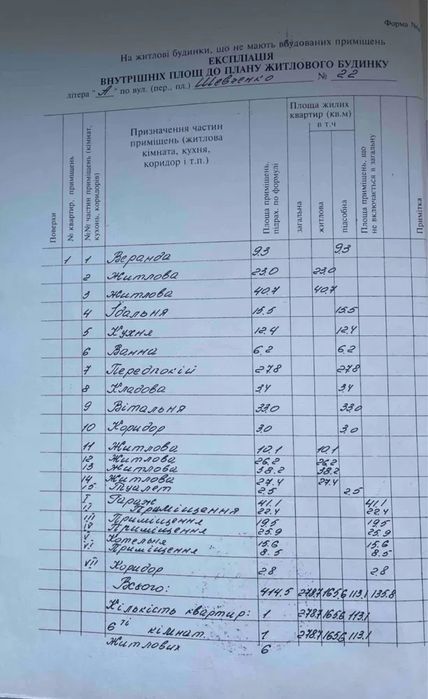 Форма №
На житлові будинки, що не мають вбудованих приміщень
ЕКСПЛІАЦІЯ
ВНУТРІШНІХ ПЛОЩ ДО ПЛАНУ ЖИТЛОВОГО БУДИНКУ
літера "А" по вул. (пер., пл.) Шевченко № 22
Поверхи
№ квартир, приміщень
№№ частин приміщень (кімнат, кухонь, коридорів)
Призначення частин приміщень (житлова кімната, кухня, коридор і т.п.)
Площа приміщень, підрах. по формулі
Площа жилих квартир (кв.м) в т.ч
загальна
житлова
підсобна
Площа приміщень, що не включається в загальну
Примітка
1 1 Веранда 9.3 9.3
2 Житлова 23.0 23.0
3 Житлова 40.7 40.7
4 Їдальня 15.5 15.5
5 Кухня 12.4 12.4
6 Ванна 6.2 6.2
7 Передпокій 27.8 27.8
8 Кладова 3.4 3.4
9 Вітальня 33.0 33.0
10 Коридор 3.0 3.0
11 Житлова 10.1 10.1
12 Житлова 26.2 26.2
13 Житлова 38.2 38.2
14 Житлова 27.4 27.4
15 Туалет 2.5 2.5
I Гараж 41.1 41.1
II Приміщення 22.4 22.4
III Приміщення 19.5 19.5
IV Приміщення 25.9 25.9
V Котельня 15.6 15.6
VI Приміщення 8.5 8.5
VII Коридор 2.8 2.8
Всього: 414.5 278.7 165.6 113.1 135.8
Кількість квартир: 1 278.7 165.6 113.1
6 ті кімнат 1 278.7 165.6 113.1
Житлових 6